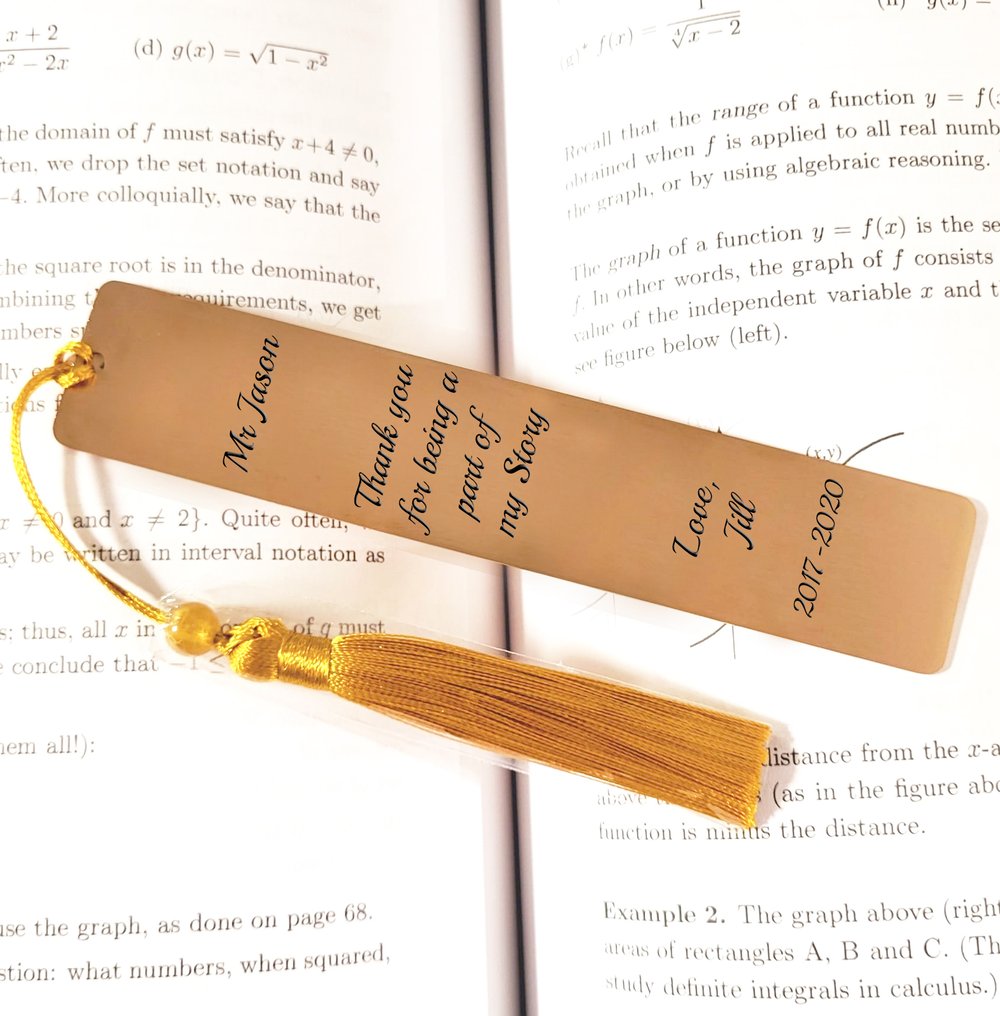 x + 2
x² − 2x
(d) g(x) = √1 − x²
the domain of f must satisfy x+4 ≠ 0,
ten, we drop the set notation and say
−4. More colloquially, we say that the
the square root is in the denominator,
quirements, we get
x ≠ 0 and x ≠ 2}. Quite often,
ay be written in interval notation as
s: thus, all x in of g must
conclude that −1 ≤
em all!):
use the graph, as done on page 68.
stion: what numbers, when squared,
f(x) = 1
√x − 2
Recall that the range of a function y = f(
obtained when f is applied to all real numb
the graph, or by using algebraic reasoning.
The graph of a function y = f(x) is the se
f. In other words, the graph of f consists
value of the independent variable x and t
see figure below (left).
(x,y)
distance from the x-a
above (as in the figure abo
function is minus the distance.
Example 2. The graph above (right
areas of rectangles A, B and C. (Th
study definite integrals in calculus.)
Mr Jason
Thank you
for being a
part of
my Story
Love,
Jill
2017-2020